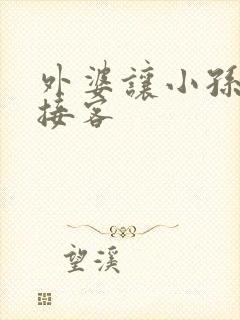 外婆讓小孫
接客
望溪